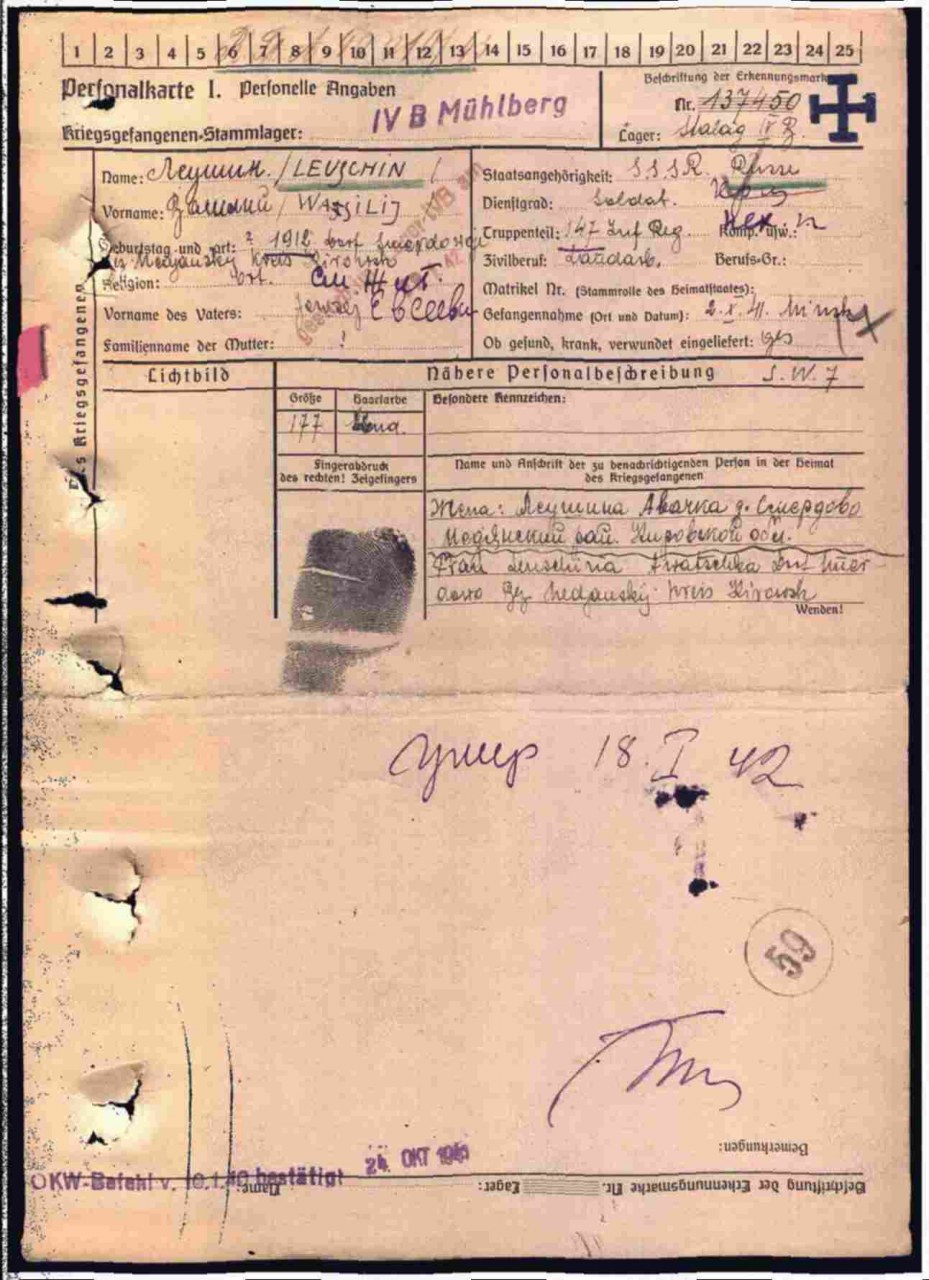 1 2 3 4 5 6 7 8 9 10 11 12 13 14 15 16 17 18 19 20 21 22 23 24 25
Personalkarte I. Personelle Angaben
IV B Mühlberg
Kriegsgefangenen-Stammlager:
Beschriftung der Erkennungsmarke
Nr. 137450
Lager: Stalag IV B
des Kriegsgefangenen
Name: Леушин. / LEUSCHIN /
Vorname: Василий / WASSILIJ
Geburtstag und -ort: ? 1912
Medjansky Kreis Kirowsk
Religion: ort.
Vorname des Vaters: Евсееви
Familienname der Mutter: !
Staatsangehörigkeit: S.S.S.R. Russe
Dienstgrad: Soldat.
Truppenteil: 147 Inf Reg. Komp. usw.:
Zivilberuf: Landarb. Berufs-Gr.:
Matrikel Nr. (Stammrolle des Heimatstaates):
Gefangennahme (Ort und Datum): 2.X.41. Minsk
Ob gesund, krank, verwundet eingeliefert: ges
Lichtbild
Nähere Personalbeschreibung S.W.7
Größe Haarfarbe Besondere Kennzeichen:
177
Fingerabdruck
des rechten! Zeigefingers
Name und Anschrift der zu benachrichtigenden Person in der Heimat
des Kriegsgefangenen
Жена: Леушина Авачка д. Смердово
Медянский рай. Кировской обл.
Frau Leuschina Awatschka
Bez. Medjansky Kreis Kirowsk
Wenden!
умер 18.I 42
59
Bemerkungen:
OKW-Befehl v. 10.1.40 bestätigt
24. OKT 1941
Beschriftung der Erkennungsmarke Nr.
Lager:
Name: